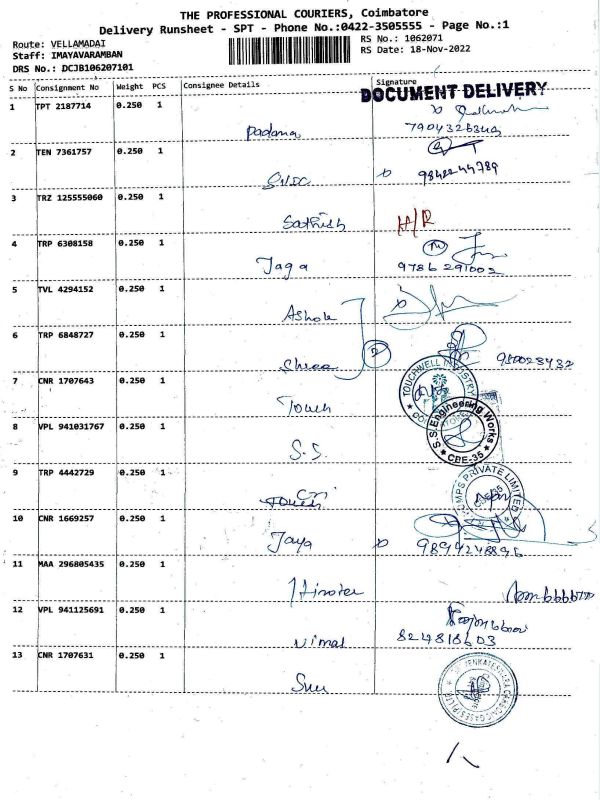 THE PROFESSIONAL COURIERS, Coimbatore
Delivery Runsheet - SPT - Phone No.:0422-3505555 - Page No.:1
Route: VELLAMADAI
RS No.: 1062071
Staff: IMAYAVARAMBAN
RS Date: 18-Nov-2022
DRS No.: DCJB106207101
S No Consignment No Weight PCS Consignee Details Signature
DOCUMENT DELIVERY
1 TPT 2187714 0.250 1 Padama
2 TEN 7361757 0.250 1 9842244789
3 TRZ 125555060 0.250 1 Sathish H/R
4 TRP 6308158 0.250 1 Jaga 9786291002
5 TVL 4294152 0.250 1 Ashok
6 TRP 6848727 0.250 1 2
7 CNR 1707643 0.250 1 Touch TOUCHWELL INDUSTRY
8 VPL 941031767 0.250 1 S.S. S.S.Engineering Works CBE-35
9 TRP 4442729 0.250 1 CRI PRIVATE LIMITED
10 CNR 1669257 0.250 1 Jaya 9894248896
11 MAA 296805435 0.250 1
12 VPL 941125691 0.250 1 Nimal
13 CNR 1707631 0.250 1